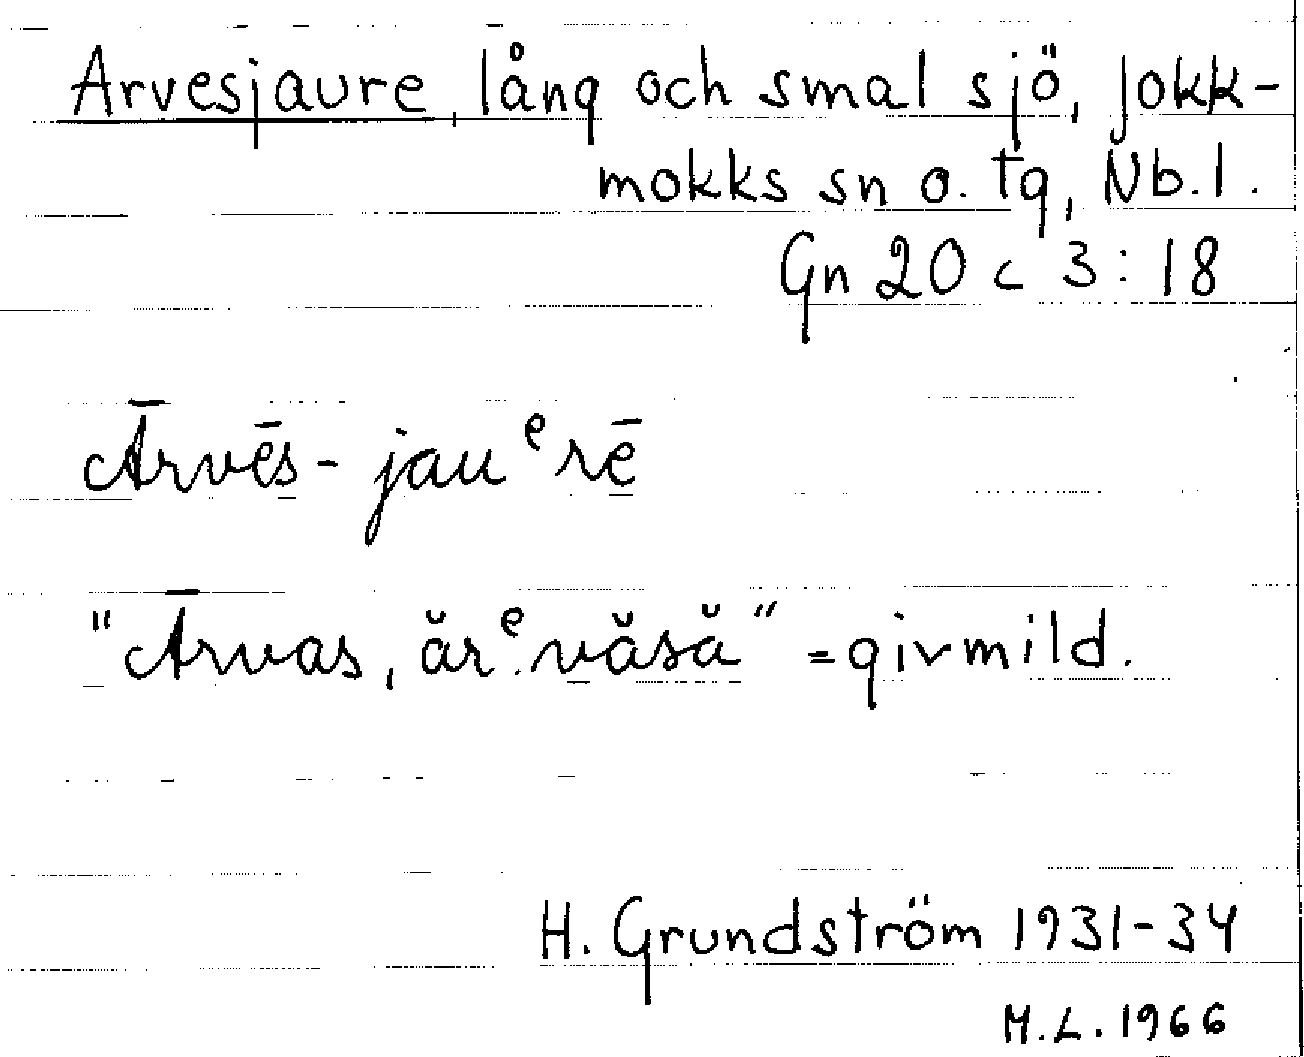 Arvesjaure, lång och smal sjö, Jokk-
mokks sn o. tg, Nb. l.
Gn 20 c 3:18
Ārvēs-jauᵉrē
"Ārvas, ărᵉ.văsă" = givmild.
H. Grundström 1931-34
M.L. 1966